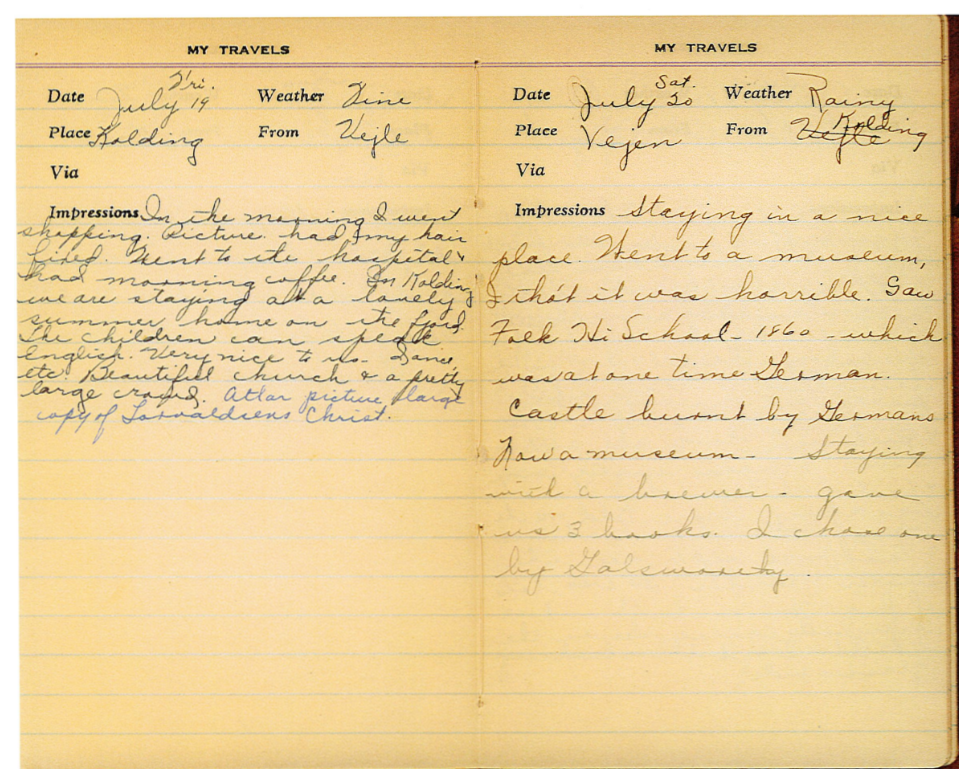 MY TRAVELS
Date July Fri. 19 Weather Fine
Place Kolding From Vejle
Via
Impressions In the morning I went
shopping. Picture. had my hair
fixed. Went to the hospital &
had morning coffee. In Kolding
we are staying at a lovely
summer home on the fjord.
The children can speak
English. Very nice to us - Dance
etc. Beautiful church & a pretty
large crowd. Altar picture large
copy of Torvaldsens Christ.
MY TRAVELS
Date July Sat. 20 Weather Rainy
Place Vejen From Vejle Kolding
Via
Impressions Staying in a nice
place. Went to a museum,
I tho't it was horrible. Saw
Folk Hi School - 1860 - which
was at one time German.
Castle burnt by Germans
Now a museum - Staying
with a brewer - gave
us 3 books. I chose one
by Galsworthy.